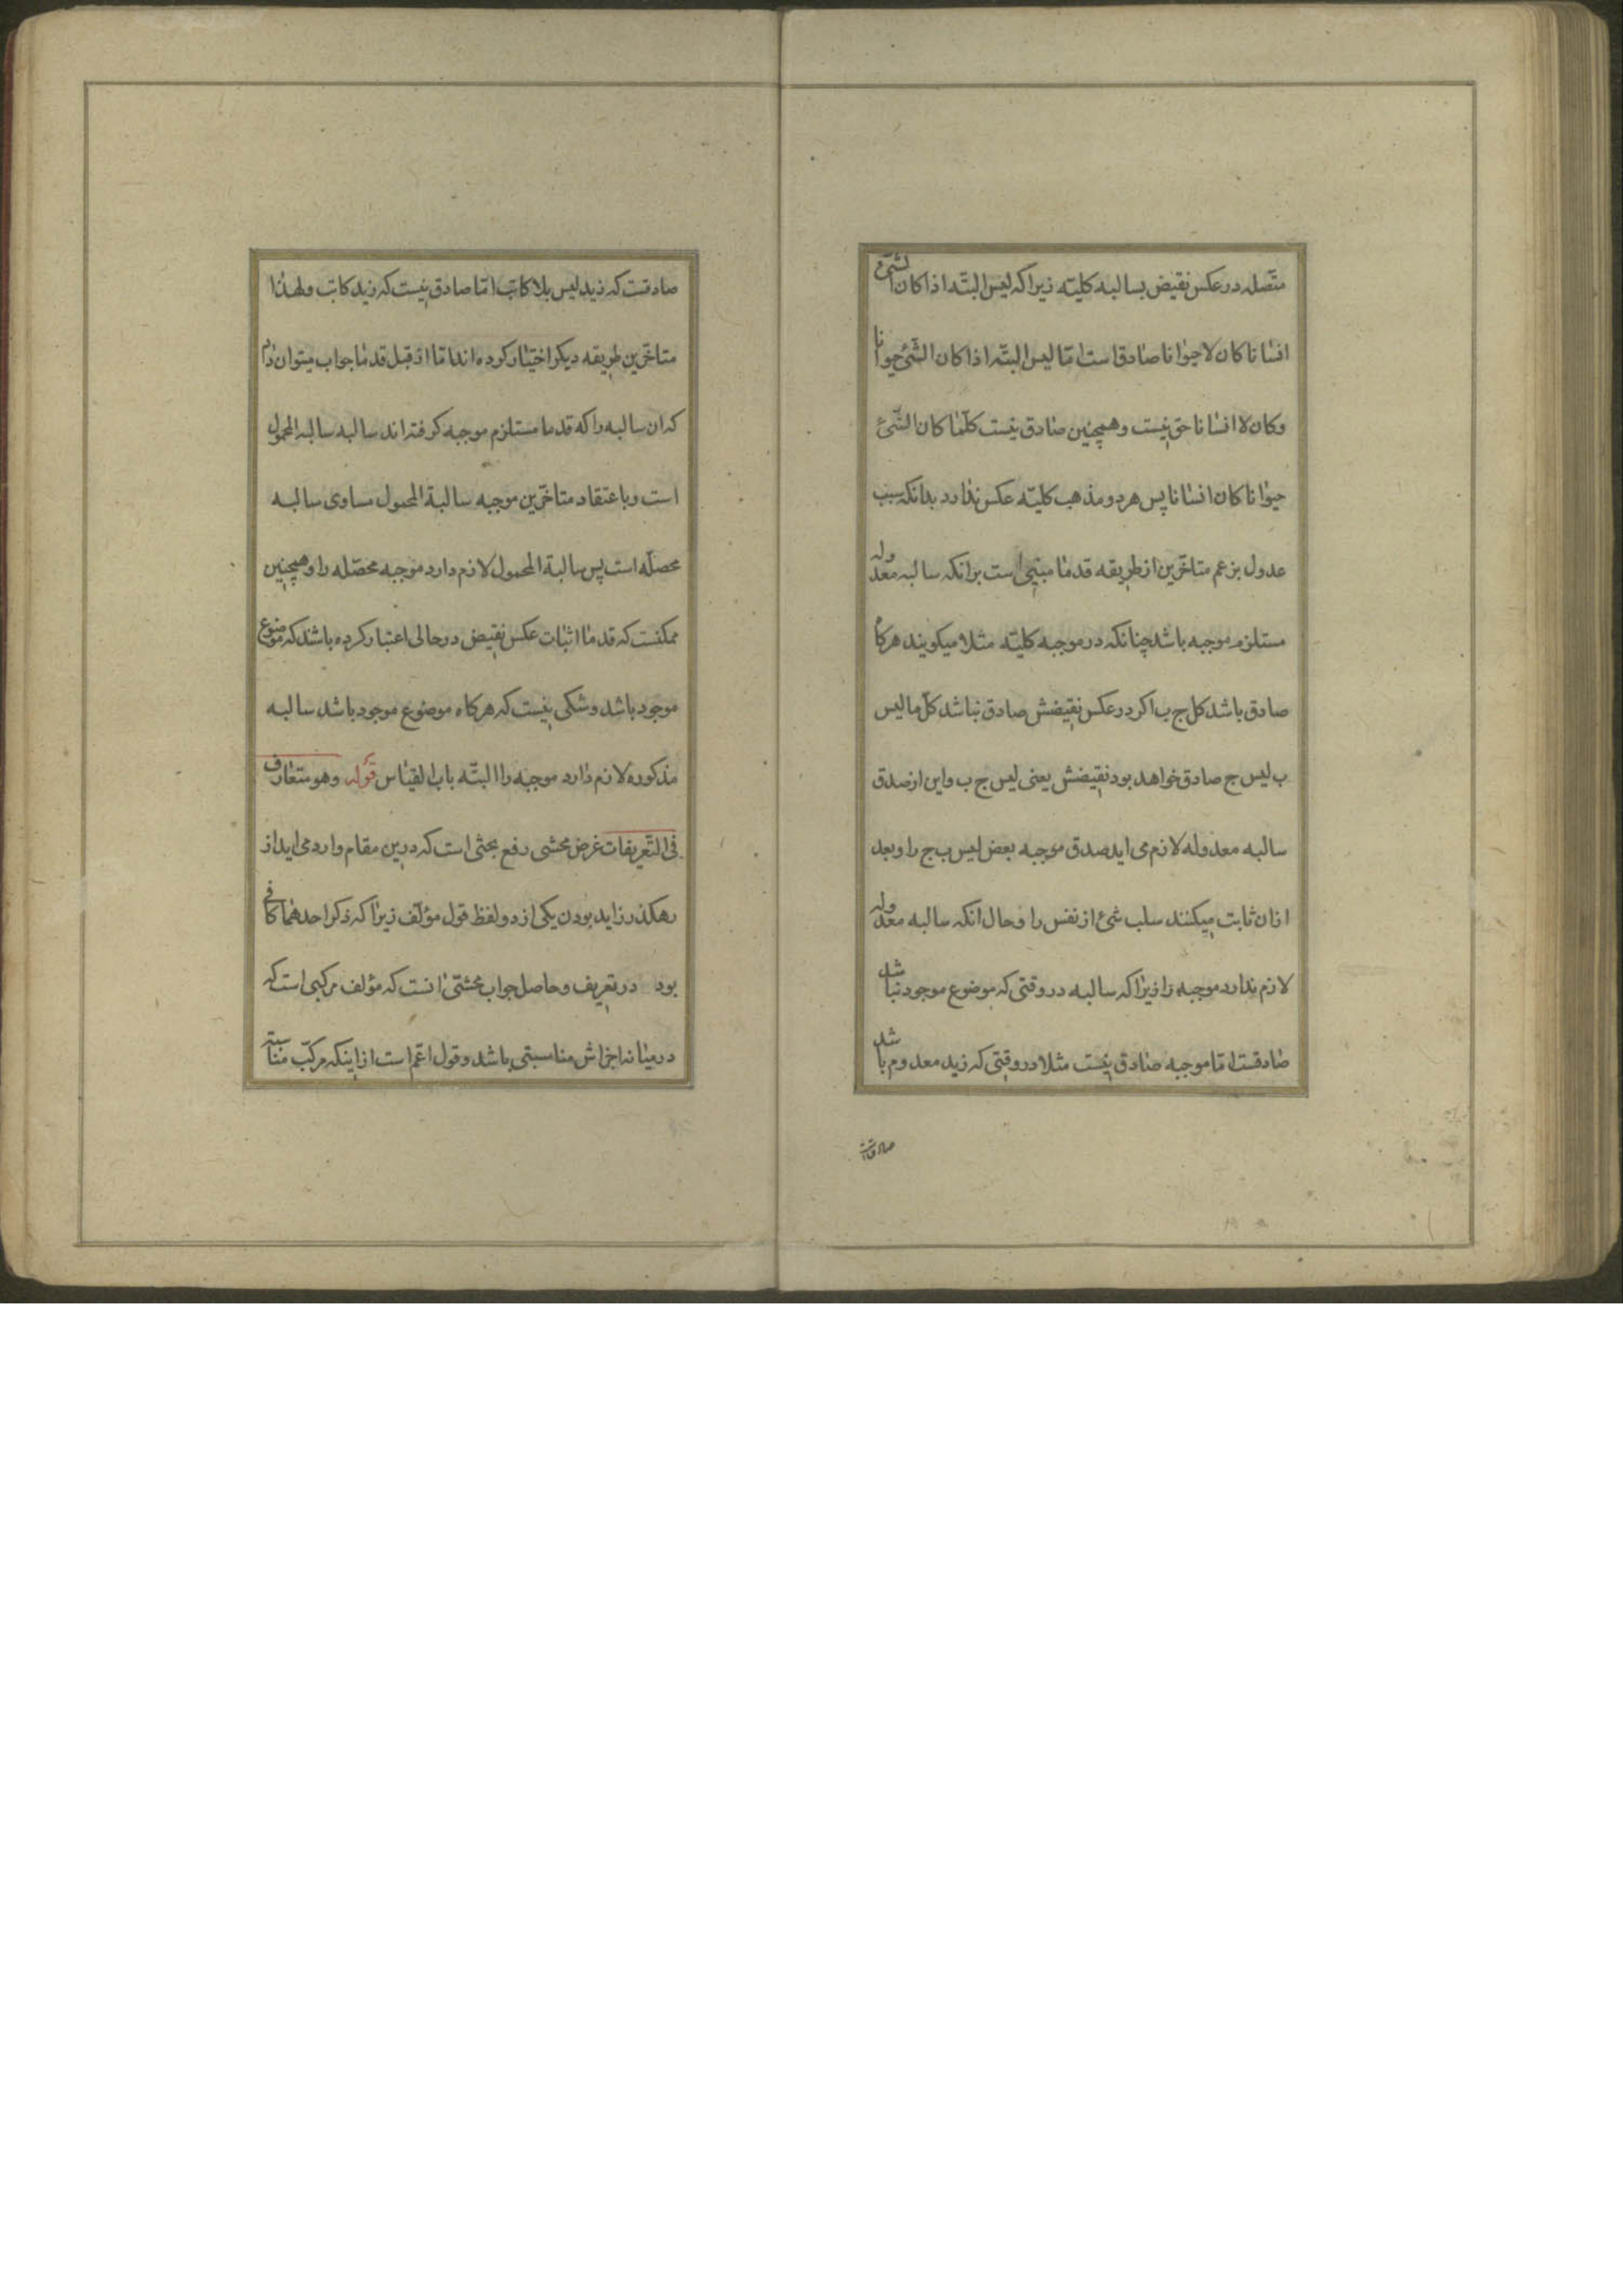 متصله در عکس نقیض بسالبه کلیته زیرا که لیس البتّه اذا کان الشیٔ
انسانا کان لا حیوانا صادقست امّا لیس البتّه اذا کان الشّیٔ حیوانا
وکان لا انسانا حق نیست وهمچنین صادق نیست کلّما کان الشّیٔ
حیوانا کان انسانا پس هر دو مذهب کلیّه عکس ندارد بدانکه سبب
عدول بزعم متاخّرین از طریقه قدما مبتنی است برانکه سالبه معدوله
مستلزم موجبه باشد چنانکه در موجبه کلیّه مثلا میکویند هرکاه
صادق باشد کل ج ب اکر در عکس نقیضش صادق نباشد کلّ ما لیس
ب لیس ج صادق خواهد بود نقیضش یعنی لیس ج ب واین از صدق
سالبه معدوله لازم می اید صدق موجبه بعض لیس ب ج را وبعد
ازان ثابت میکنند سلب شیٔ از نفس را وحال انکه سالبه معدوله
لازم ندارد موجبه را زیرا که سالبه در وقتی که موضوع موجود نباشد
صادقست امّا موجبه صادق نیست مثلا در وقتی که زید معدوم باشد
صادقست
صادقست که زید لیس بلا کاتب امّا صادق نیست که زید کاتب ولهذا
متاخّرین طریقه دیکر اختیار کرده اند امّا از قبل قدما جواب میتوان داد
که ان سالبه را که قدما مستلزم موجبه کرفته اند سالبه سالبه المحمول
است وباعتقاد متاخّرین موجبه سالبة المحمول مساوی سالبه
محصلّه است پس سالبة المحمول لازم دارد موجبه محصّله را وهمچنین
ممکنست که قدما اثبات عکس نقیض در حالی اعتبار کرده باشند که موضوع
موجود باشد وشکی نیست که هرکاه موضوع موجود باشد سالبه
مذکوره لازم دارد موجبه را البتّه باب القیاس قوله وهو متعارف
فی التّعریفات غرض محشی رفع بحثی است که درین مقام وارد می اید از
رهکذر زاید بودن یکی از دو لفظ قول مؤلّف زیرا که ذکر احدهما کافی
بود در تعریف وحاصل جواب محشّی انست که مؤلف مرکبی است که
درمیانه اجزاش مناسبتی باشد وقول اعّم است از اینکه مرکّب مناسبته